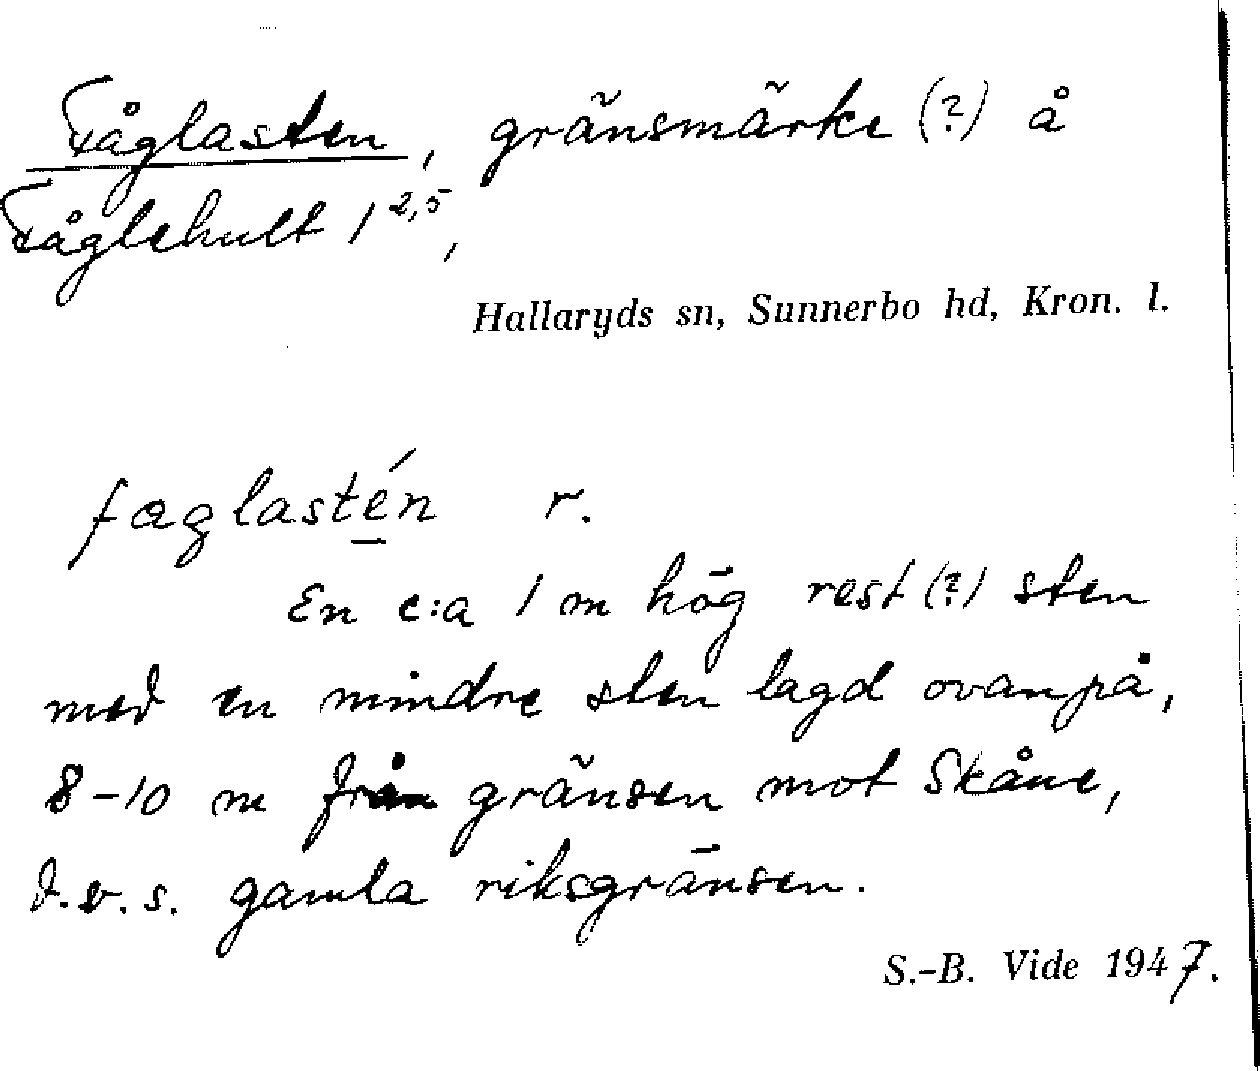 Fåglasten, gränsmärke (?) å
Fåglehult 1 2,5,
Hallaryds sn, Sunnerbo hd, Kron. l.
faglastén r.
En c:a 1 m hög rest (?) sten
med en mindre sten lagd ovanpå,
8-10 m från gränsen mot Skåne,
d.v.s. gamla riksgränsen.
S.-B. Vide 1947.